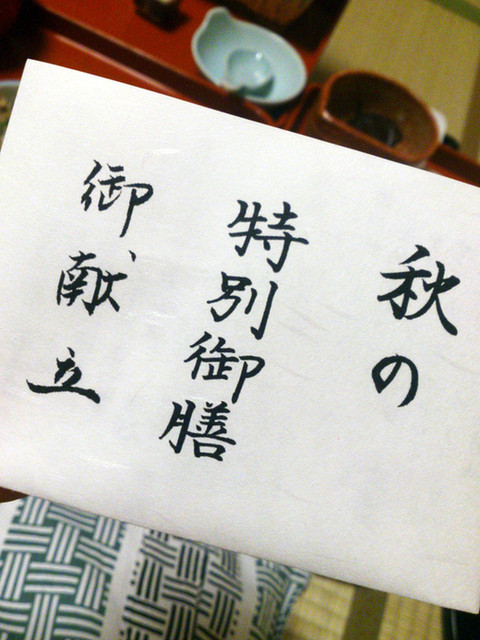 秋の
特別御膳
御献立